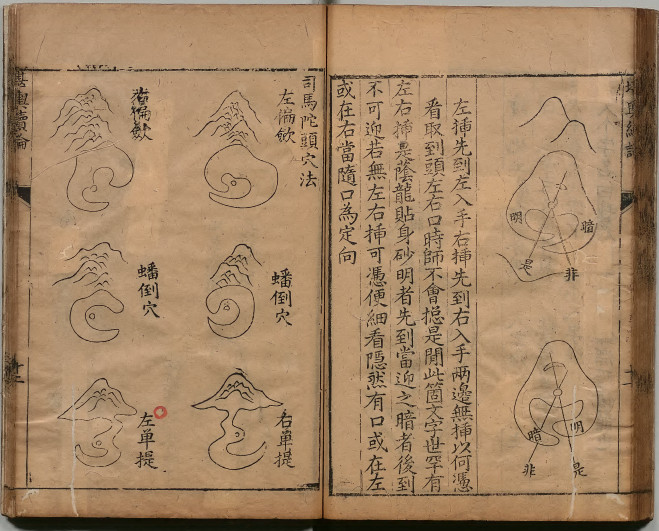 明
暗
是
非
暗
明
非
是
左揷先到左入手右揷先到右入手两邉無揷以何憑
㸔取到頭左右口時師不㑹揔是閒此箇文字世罕有
左右揷是蔭龍貼身砂明者先到當迎之暗者後到
不可迎若無左右揷可憑便細㸔隱然有口或在左
或在右當隨口為定向
司馬陀頭穴法
左偏飲
蟠倒穴
右单提
蟠倒穴
左单提